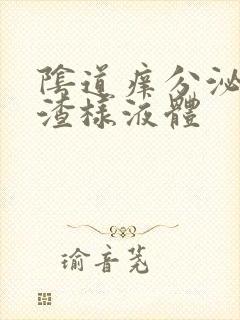 陰道痒分泌
渣樣液體
瑜音茺